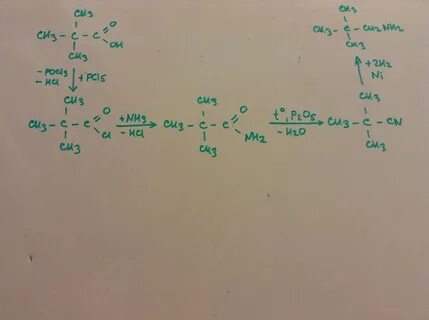 CH3
CH3 - C - C = O
OH
CH3
- POCl3
- HCl
+ PCl5
CH3
CH3 - C - C = O
Cl
CH3
+NH3
- HCl
CH3
CH3 - C - C = O
NH2
CH3
t°, P2O5
- H2O
CH3
CH3 - C - CN
CH3
+2H2
Ni
CH3
CH3 - C - CH2NH2
CH3